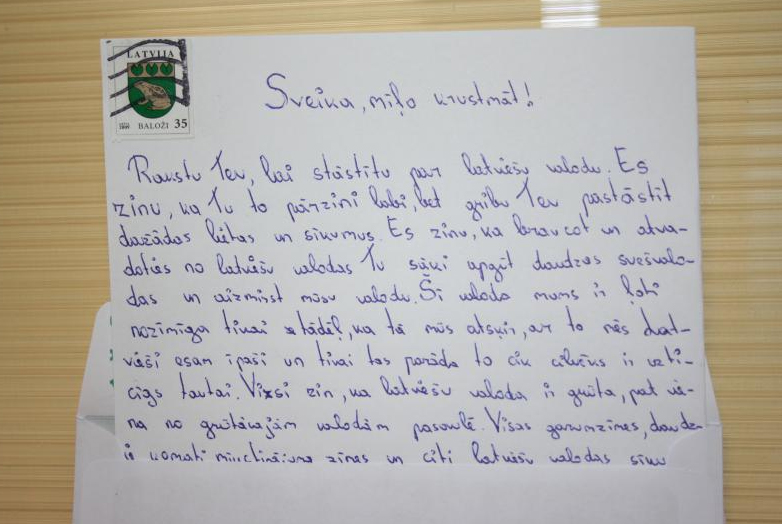 LATVIJA
BALOŽI 35
Sveika, mīļo krustmāt!
Rakstu Tev, lai stāstītu par latviešu valodu. Es
zinu, ka Tu to pārzini labi, bet gribu Tev pastāstīt
dažādas lietas un sīkumus. Es zinu, ka braucot un atva-
doties no latviešu valodas Tu sāki apgūt daudzas svešvalo-
das un aizmirst mūsu valodu. Šī valoda mums ir ļoti
nozīmīga tikai tādēļ, ka tā mūs atšķir, ar to mēs lat-
vieši esam īpaši un tikai tas parāda to cik cilvēks ir uzti-
cīgs tautai. Visi zin, ka latviešu valoda ir grūta, pat vie-
na no grūtākajām valodām pasaulē. Visas garumzīmes, daudzie
komati mīkstinājuma zīmes un citi latviešu valodas sīku